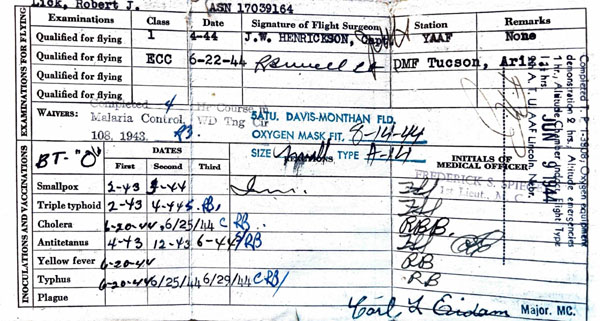 Lick, Robert J. ASN 17039164
EXAMINATIONS FOR FLYING
Examinations Class Date Signature of Flight Surgeon Station Remarks
Qualified for flying 1 4-44 J.W. HENRICKSON, Capt YAAF None
Qualified for flying ECC 6-22-44 DMF Tucson, Ariz
Qualified for flying
Qualified for flying
WAIVERS: Completed 4 Hr Course in
Malaria Control, WD Tng Cir
108, 1943. RB.
SATU. DAVIS-MONTHAN FLD.
OXYGEN MASK FIT. 8-14-44
SIZE Small TYPE A-14
Completed T. P. 1-3808; Oxygen equipment
demonstration 2 hrs. Altitude emergencies
1 hr., Altitude Chamber indoc. Flight Type
hrs. JUN 9 '44
A. T. U. AAF Lincoln, Nebr.
INOCULATIONS AND VACCINATIONS
BT-"O" DATES INITIALS OF
First Second Third MEDICAL OFFICER
FREDERICK S.
1st Lieut., M. C.
Smallpox 2-43 3-44 Imm.
Triple typhoid 2-43 4-44 RB
Cholera 6-20-44 6/25/44 C RB RBB.
Antitetanus 4-43 12-43 6-44 RB
Yellow fever 6-20-44 RB
Typhus 6-20-44 6/25/44 6/29/44 CRB RB
Plague
Carl L Eidam Major. MC.